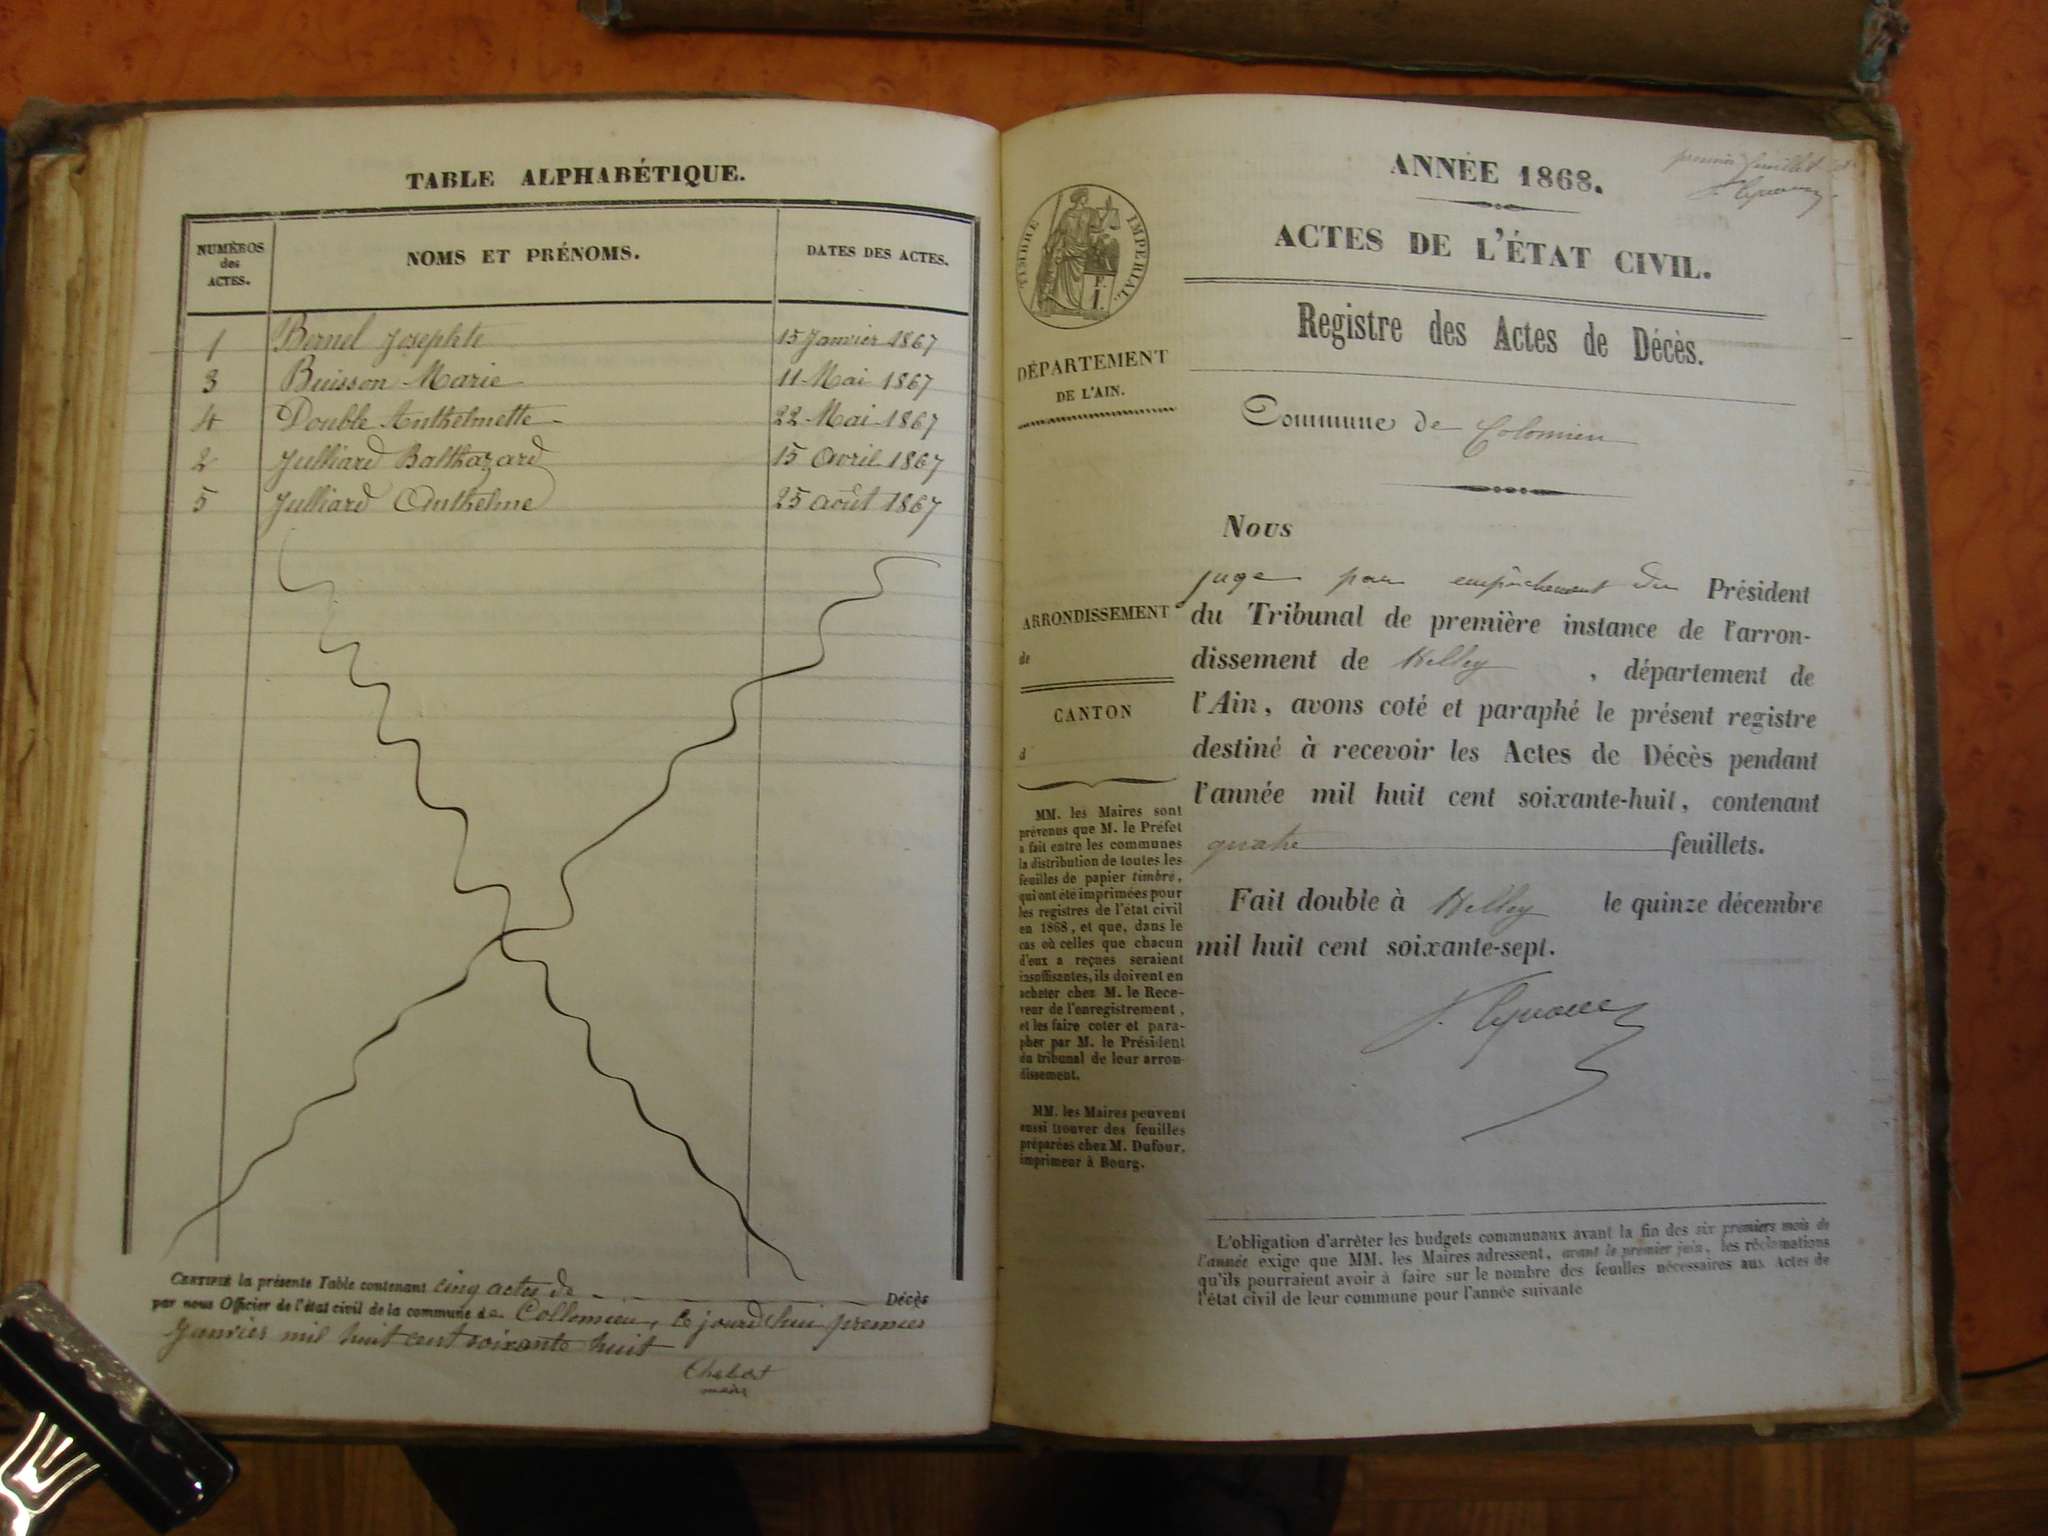 TABLE ALPHABÉTIQUE.
NUMÉROS des ACTES. NOMS ET PRÉNOMS. DATES DES ACTES.
1 Bernel Josephte 15 Janvier 1867
3 Buisson Marie 11 Mai 1867
4 Double Anthelmette 22 Mai 1867
2 Julliard Balthazard 15 Avril 1867
5 Julliard Anthelme 25 août 1867
CERTIFIÉ la présente Table contenant cinq actes de Décès
par nous Officier de l'état civil de la commune de Collomieu, le jourd'hui premier
Janvier mil huit cent soixante huit
maire
premier feuillet
ANNÉE 1868.
ACTES DE L'ÉTAT CIVIL.
TIMBRE IMPÉRIAL.
Registre des Actes de Décès.
DÉPARTEMENT
DE L'AIN.
Commune de Colomieu
ARRONDISSEMENT
de
CANTON
d
MM. les Maires sont
prévenus que M. le Préfet
a fait entre les communes
la distribution de toutes les
feuilles de papier timbré,
qui ont été imprimées pour
les registres de l'état civil
en 1868, et que, dans le
cas où celles que chacun
d'eux a reçues seraient
insuffisantes, ils doivent en
acheter chez M. le Rece-
veur de l'enregistrement,
et les faire coter et para-
pher par M. le Président
du tribunal de leur arron-
dissement.
MM. les Maires peuvent
aussi trouver des feuilles
préparées chez M. Dufour,
imprimeur à Bourg.
Nous
juge pour empêchement du Président
du Tribunal de première instance de l'arron-
dissement de Belley, département de
l'Ain, avons coté et paraphé le présent registre
destiné à recevoir les Actes de Décès pendant
l'année mil huit cent soixante-huit, contenant
quatre feuillets.
Fait double à Belley le quinze décembre
mil huit cent soixante-sept.
L'obligation d'arrêter les budgets communaux avant la fin des six premiers mois de
l'année exige que MM. les Maires adressent, avant le premier juin, les réclamations
qu'ils pourraient avoir à faire sur le nombre des feuilles nécessaires aux Actes de
l'état civil de leur commune pour l'année suivante